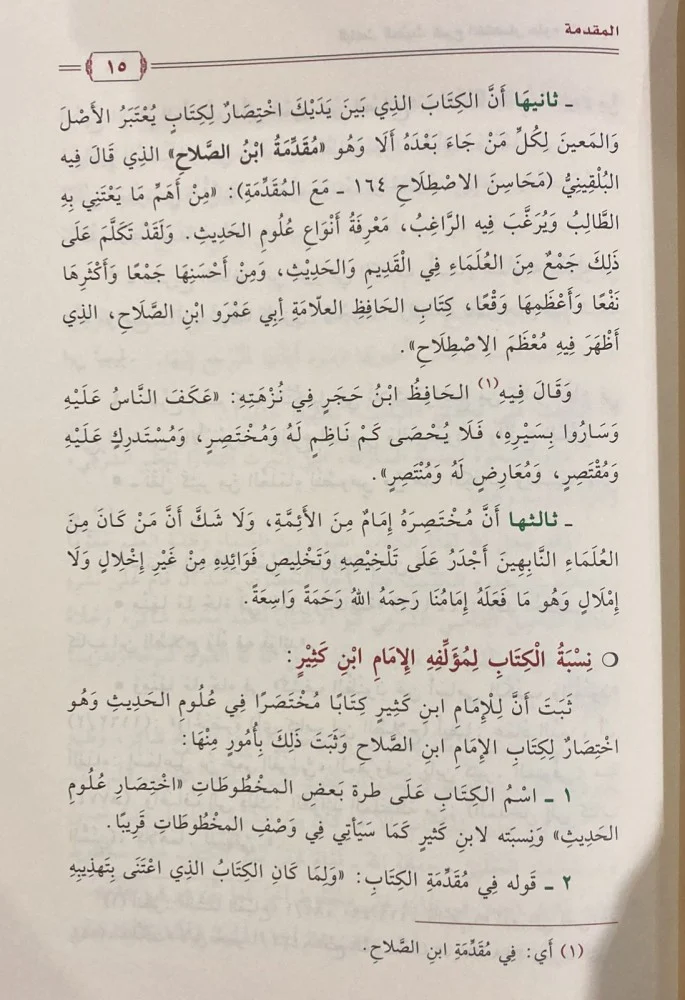 المقدمة
١٥
ـ ثانيهَا أَنَّ الكِتَابَ الذِي بَينَ يَدَيْكَ اخْتِصَارٌ لِكِتَابٍ يُعْتَبَرُ الأَصْلَ
وَالمَعينَ لِكُلِّ مَنْ جَاءَ بَعْدَهُ أَلَا وَهُو «مُقَدِّمَةُ ابْنُ الصَّلاحِ» الذِي قَالَ فِيه
البُلْقِينِيُّ (مَحَاسِنَ الاصْطِلَاحِ ١٦٤ ـ مَعَ المُقَدِّمَةِ): «مِنْ أَهَمِّ مَا يَعْتَنِي بِهِ
الطَّالِبُ وَيُرَغَّبَ فِيه الرَّاغِبُ، مَعْرِفَةُ أَنْوَاعِ عُلُومِ الحَدِيثِ. وَلَقَدْ تَكَلَّمَ عَلَى
ذَلِكَ جَمْعٌ مِنَ العُلَمَاءِ فِي الْقَدِيمِ وَالحَدِيْثِ، وَمِنْ أَحْسَنِهَا جَمْعًا وَأَكْثَرِهَا
نَفْعًا وَأَعْظَمِهَا وَقْعًا، كِتَابِ الحَافِظِ العلاّمَةِ أبِي عَمْرَو ابْنِ الصَّلَاحِ، الذِي
أَظْهَرَ فِيه مُعْظَمَ الِاصْطِلَاحِ».
وَقَالَ فِيهِ(١) الحَافِظُ ابْنُ حَجَرٍ فِي نُزْهَتِهِ: «عَكَفَ النَّاسُ عَلَيْهِ
وَسَارُوا بِسَيْرِهِ، فَلَا يُحْصَى كَمْ نَاظِمٍ لَهُ وَمُخْتَصِرٍ، وَمُسْتَدرِكٍ عَلَيْهِ
وَمُقْتَصِرٍ، وَمُعَارِضٍ لَهُ وَمُنْتَصِرٍ».
ـ ثالثها أَنَّ مُخْتَصِرَهُ إِمَامٌ مِنَ الأَئِمَّةِ، وَلَا شَكَّ أَنَّ مَنْ كَانَ مِنَ
العُلَمَاءِ النَّابِهِينَ أَجْدَرُ عَلَى تَلْخِيْصِهِ وَتَخْلِيصِ فَوَائِدِهِ مِنْ غَيْرِ إِخْلالٍ وَلَا
إِمْلَالٍ وَهُو مَا فَعَلَهُ إِمَامُنَا رَحِمَهُ اللهُ رَحْمَةً وَاسِعَةً.
❍ نِسْبَةُ الْكِتَابِ لِمُؤَلِّفِهِ الإمَامِ ابْنِ كَثِيْرٍ:
ثَبَتَ أَنَّ لِلْإِمَامِ ابنِ كَثِيرٍ كِتَابًا مُخْتَصَرًا فِي عُلُومِ الحَدِيثِ وَهُو
اخْتِصَارٌ لِكِتَابِ الإِمَامِ ابنِ الصَّلاحِ وَثَبَتَ ذَلِكَ بِأُمُورٍ مِنْهَا:
١ ـ اسْمُ الكِتَابِ عَلَى طرة بَعضِ المخْطُوطَاتِ «اخْتِصَارِ عُلُومِ
الحَدِيثِ» وَنِسبَته لابنِ كَثيرٍ كَمَا سَيَأتِي فِي وَصْفِ المخْطُوطَاتِ قَرِيبًا.
٢ ـ قَوله فِي مُقَدِّمَةِ الكِتَابِ: «وَلِمَا كَانَ الكِتَابُ الذِي اعْتَنَى بِتَهذِيبِهِ
(١) أَي: فِي مُقَدِّمَةِ ابنِ الصَّلاحِ.